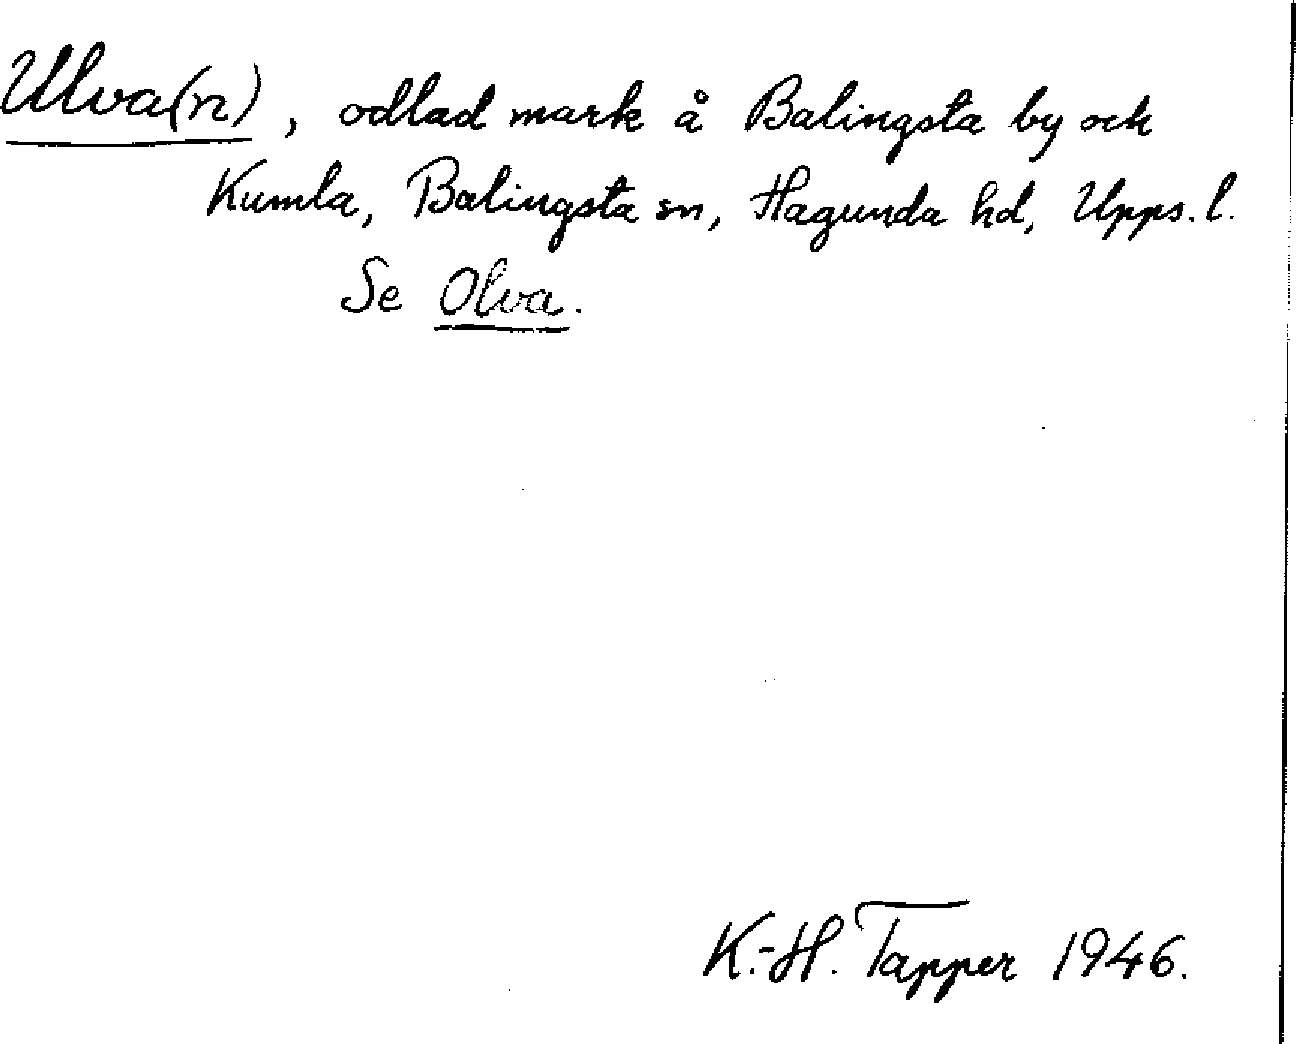 Ulva(n), odlad mark å Balingsta by och
Kumla, Balingsta sn, Hagunda hd, Upps. l.
Se Olva.
K.-H. Tapper 1946.